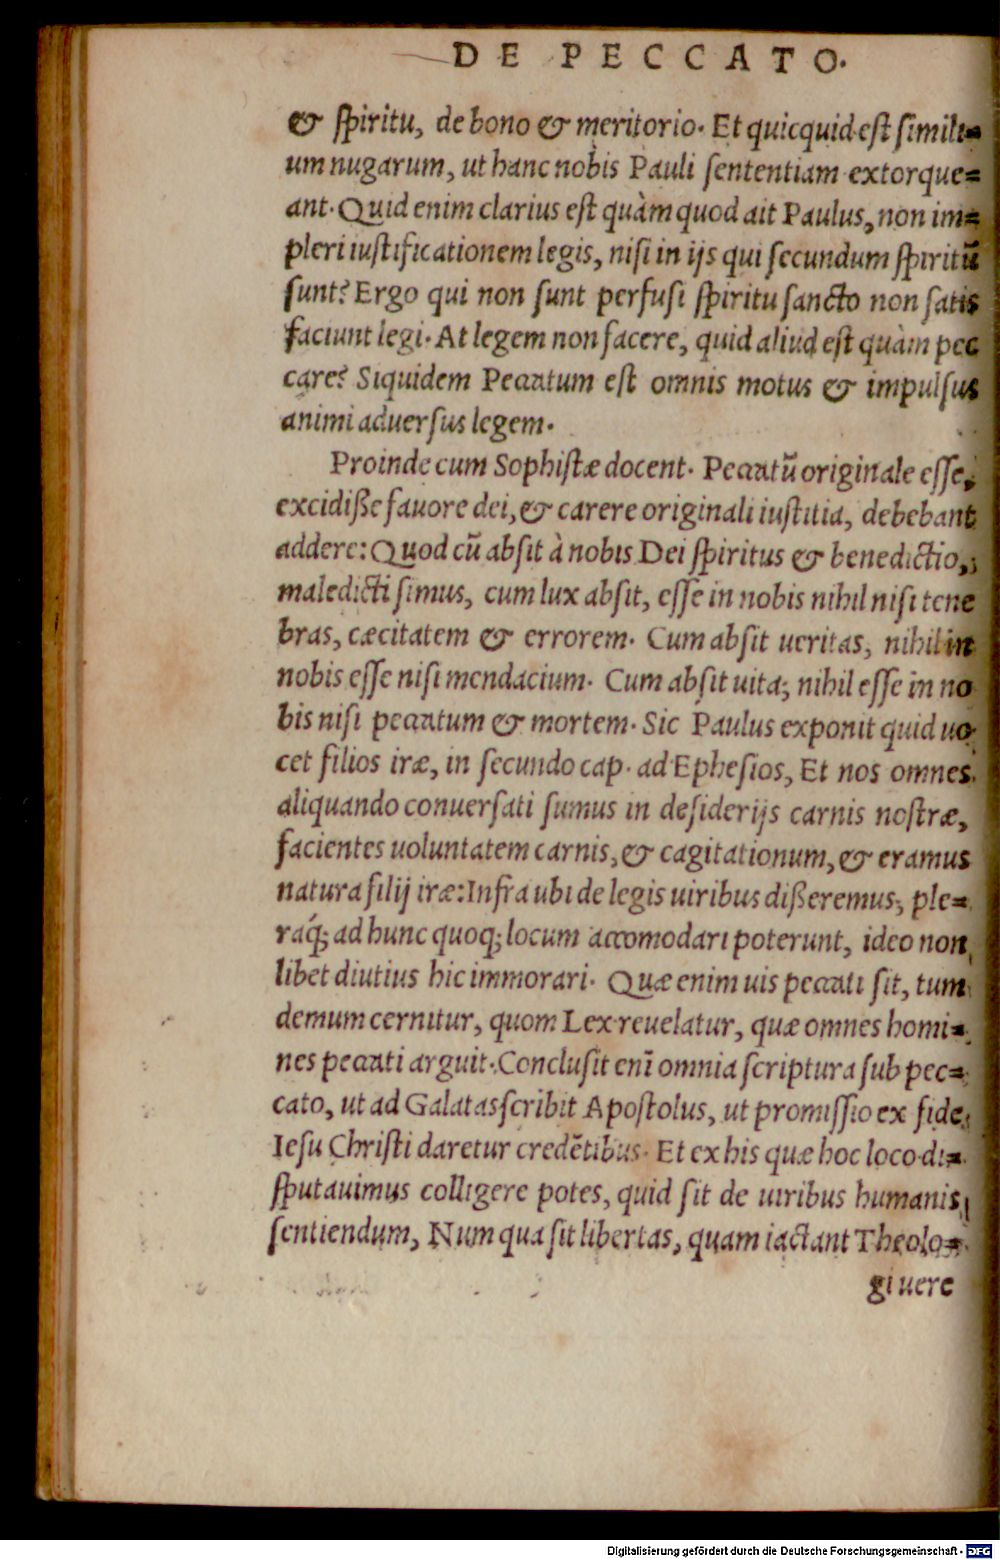 DE PECCATO.
& ſpiritu, de bono & meritorio. Et quicquid eſt ſimili=
um nugarum, ut hanc nobis Pauli ſententiam extorque=
ant. Quid enim clarius eſt quàm quod ait Paulus, non im=
pleri iuſtificationem legis, niſi in ijs qui ſecundum ſpiritũ
ſunt? Ergo qui non ſunt perfuſi ſpiritu ſancto non ſatis
faciunt legi. At legem non facere, quid aliud eſt quàm pec
care? Siquidem Peccatum eſt omnis motus & impulſus
animi aduerſus legem.
Proinde cum Sophiſtæ docent. Peccatũ originale eſſe,
excidiße fauore dei, & carere originali iuſtitia, debebant
addere: Quod cũ abſit à nobis Dei ſpiritus & benedictio,
maledicti ſimus, cum lux abſit, eſſe in nobis nihil niſi tene
bras, cæcitatem & errorem. Cum abſit ueritas, nihil in
nobis eſſe niſi mendacium. Cum abſit uita, nihil eſſe in no
bis niſi peccatum & mortem. Sic Paulus exponit quid uo
cet filios iræ, in ſecundo cap. ad Epheſios, Et nos omnes
aliquando conuerſati ſumus in deſiderijs carnis noſtræ,
facientes uoluntatem carnis, & cagitationum, & eramus
natura filij iræ: Infra ubi de legis uiribus dißeremus, ple=
raq́; ad hunc quoq; locum accomodari poterunt, ideo non
libet diutius hic immorari. Quæ enim uis peccati ſit, tum
demum cernitur, quom Lex reuelatur, quæ omnes homi=
nes peccati arguit. Concluſit enĩ omnia ſcriptura ſub pec=
cato, ut ad Galatas ſcribit Apoſtolus, ut promiſſio ex fide
Ieſu Chriſti daretur credẽtibus. Et ex his quæ hoc loco di=
ſputauimus colligere potes, quid ſit de uiribus humanis
ſentiendum, Num qua ſit libertas, quam iactant Theolo=
gi uere
Digitalisierung gefördert durch die Deutsche Forschungsgemeinschaft - DFG